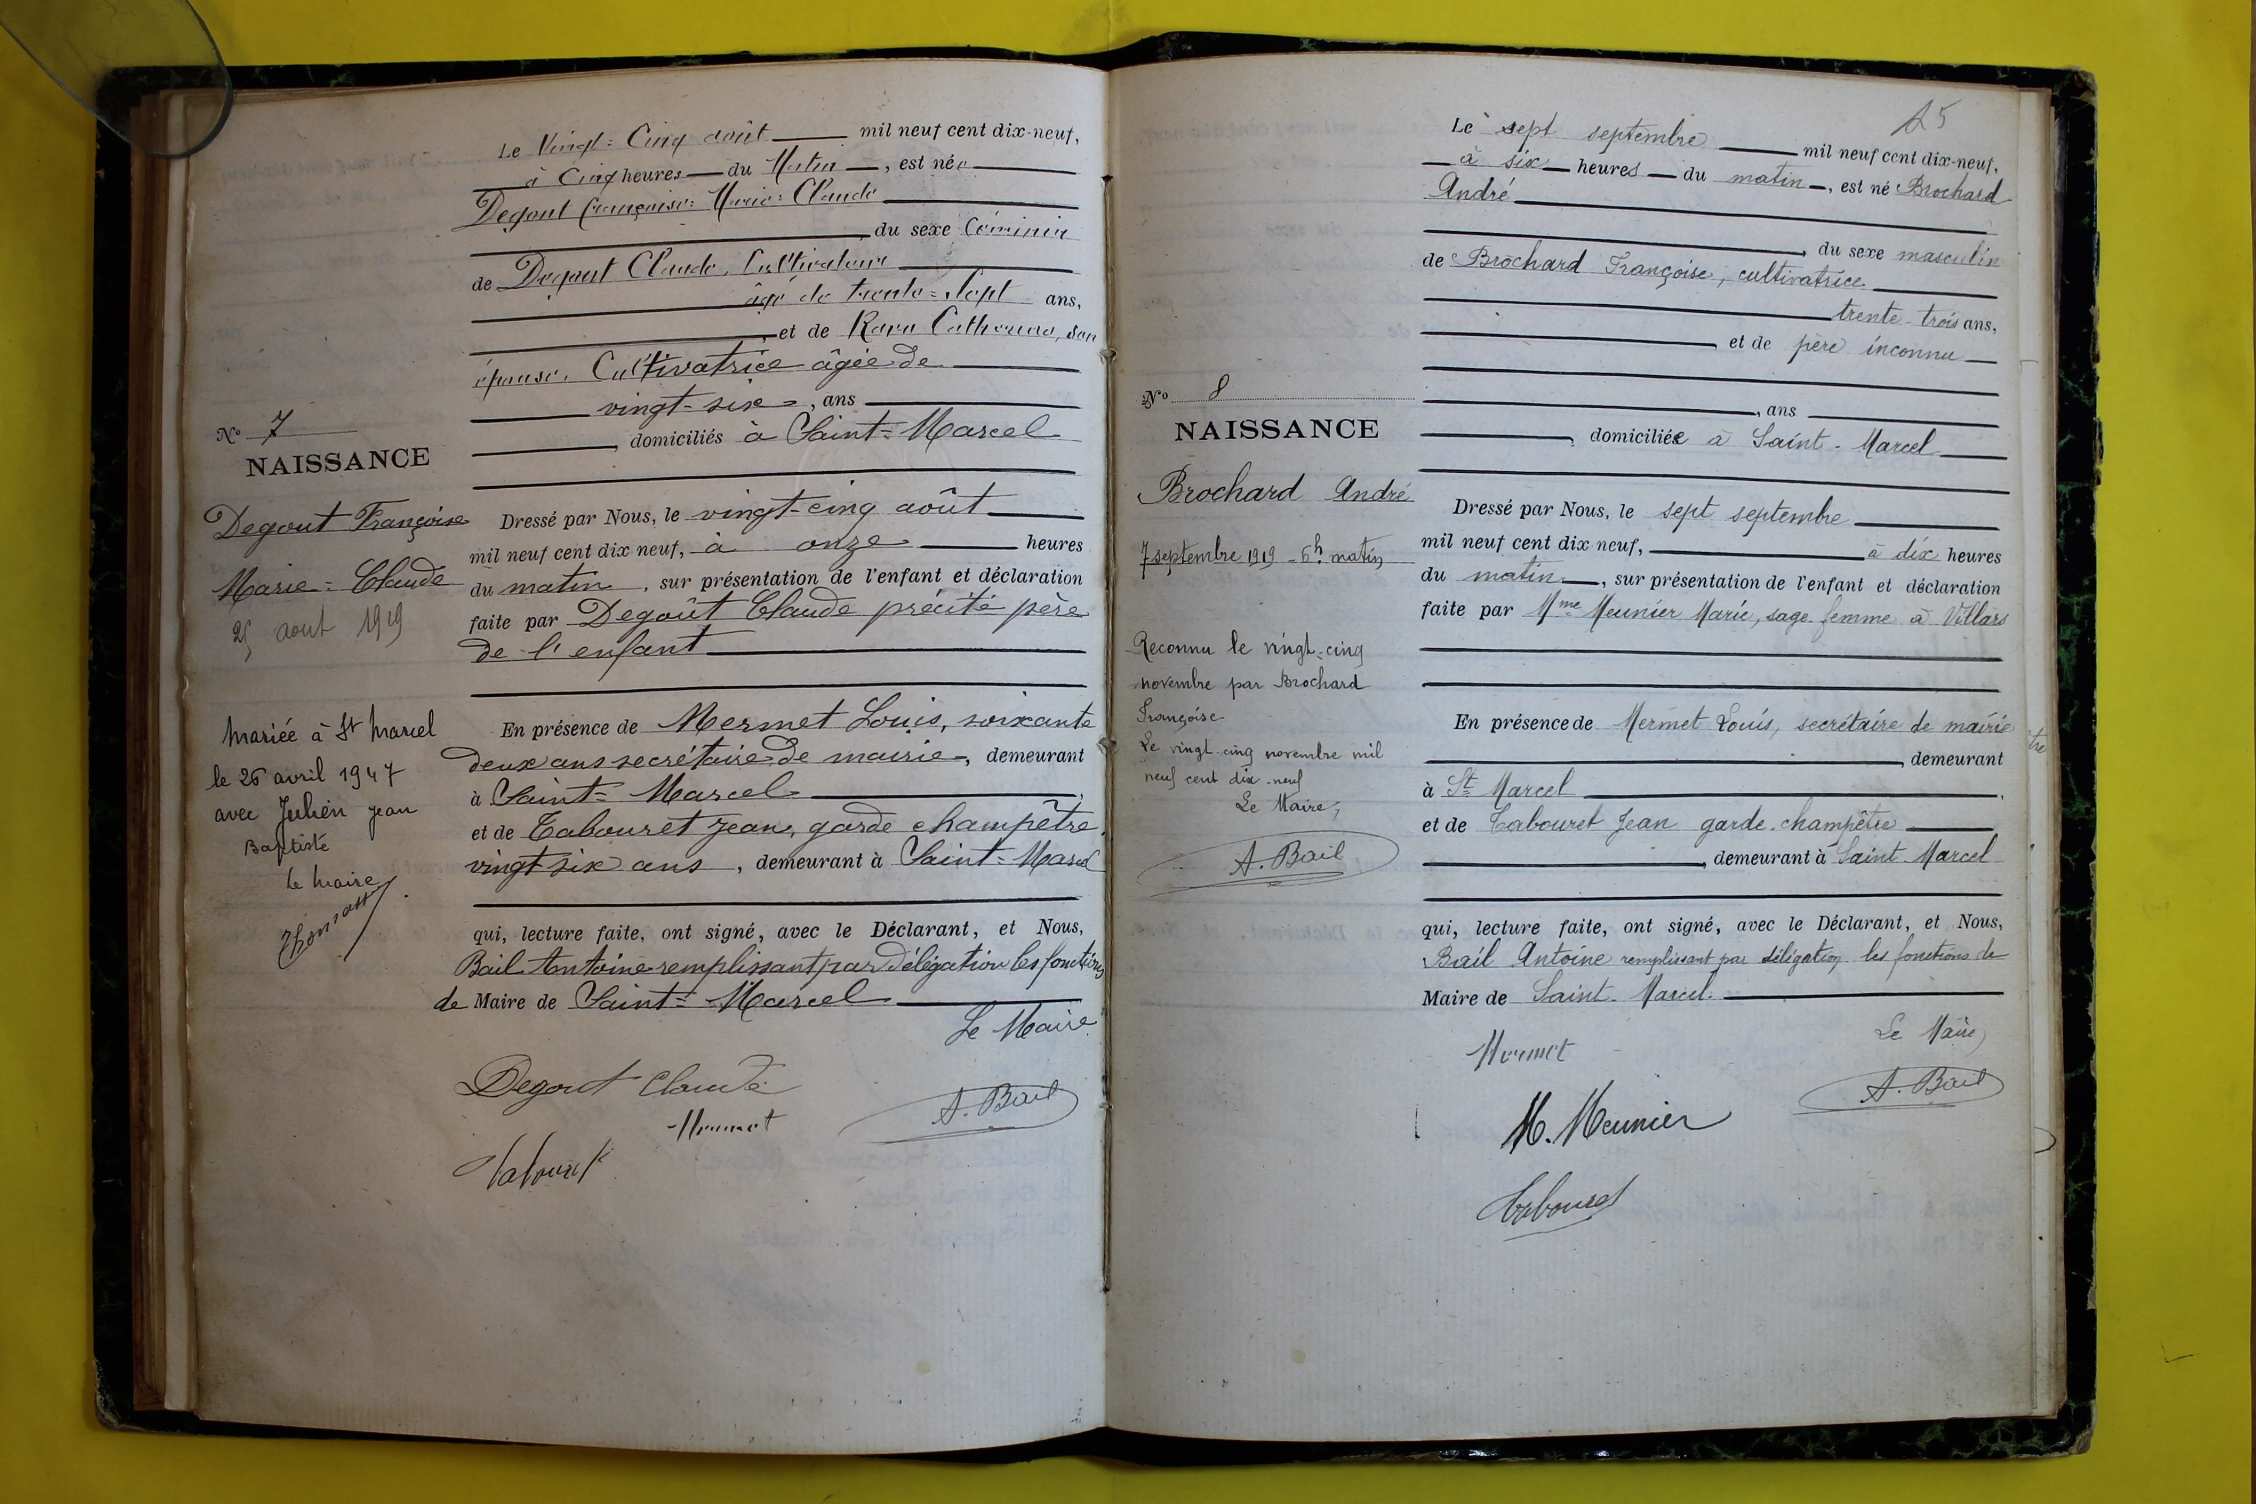 Le Vingt-Cinq août mil neuf cent dix-neuf,
à Cinq heures du Matin, est née
Degout Françoise-Marie-Claude
du sexe féminin
de Degout Claude, Cultivateur
âgé de trente-sept ans,
et de Ravu Catherine, son
épouse, Cultivatrice âgée de
vingt-six, ans
domiciliés à Saint-Marcel
N° 7
NAISSANCE
Degout Françoise
Marie-Claude
25 aout 1919
mariée à St Marcel
le 26 avril 1947
avec Julien Jean
Baptiste
le Maire
Dressé par Nous, le vingt-cinq août
mil neuf cent dix neuf, à onze heures
du matin, sur présentation de l'enfant et déclaration
faite par Degoût Claude précité père
de l'enfant
En présence de Mermet Louis, soixante
deux ans secrétaire de mairie, demeurant
à Saint-Marcel,
et de Tabouret Jean, garde champêtre
vingt six ans, demeurant à Saint-Marcel
qui, lecture faite, ont signé, avec le Déclarant, et Nous,
Bail Antoine remplissant par délégation les fonctions
de Maire de Saint-Marcel
Le Maire
Degout Claude
Mermet
A. Bail
Tabouret
25
Le sept septembre mil neuf cent dix-neuf,
à six heures du matin, est né Brochard
André
du sexe masculin
de Brochard Françoise, cultivatrice
trente-trois ans,
et de père inconnu
, ans
domiciliée à Saint-Marcel
N° 8
NAISSANCE
Brochard André
7 septembre 1919 - 6h matin
Reconnu le vingt-cinq
novembre par Brochard
Françoise
Le vingt-cinq novembre mil
neuf cent dix-neuf
Le Maire,
A. Bail
Dressé par Nous, le sept septembre
mil neuf cent dix neuf, à dix heures
du matin, sur présentation de l'enfant et déclaration
faite par Mme Meunier Marie, sage-femme à Villars
En présence de Mermet Louis, secrétaire de mairie
, demeurant
à St Marcel,
et de Tabouret Jean garde-champêtre
, demeurant à Saint Marcel
qui, lecture faite, ont signé, avec le Déclarant, et Nous,
Bail Antoine remplissant par délégation les fonctions de
Maire de Saint-Marcel.
Le Maire,
Mermet
A. Bail
M. Meunier
Tabouret